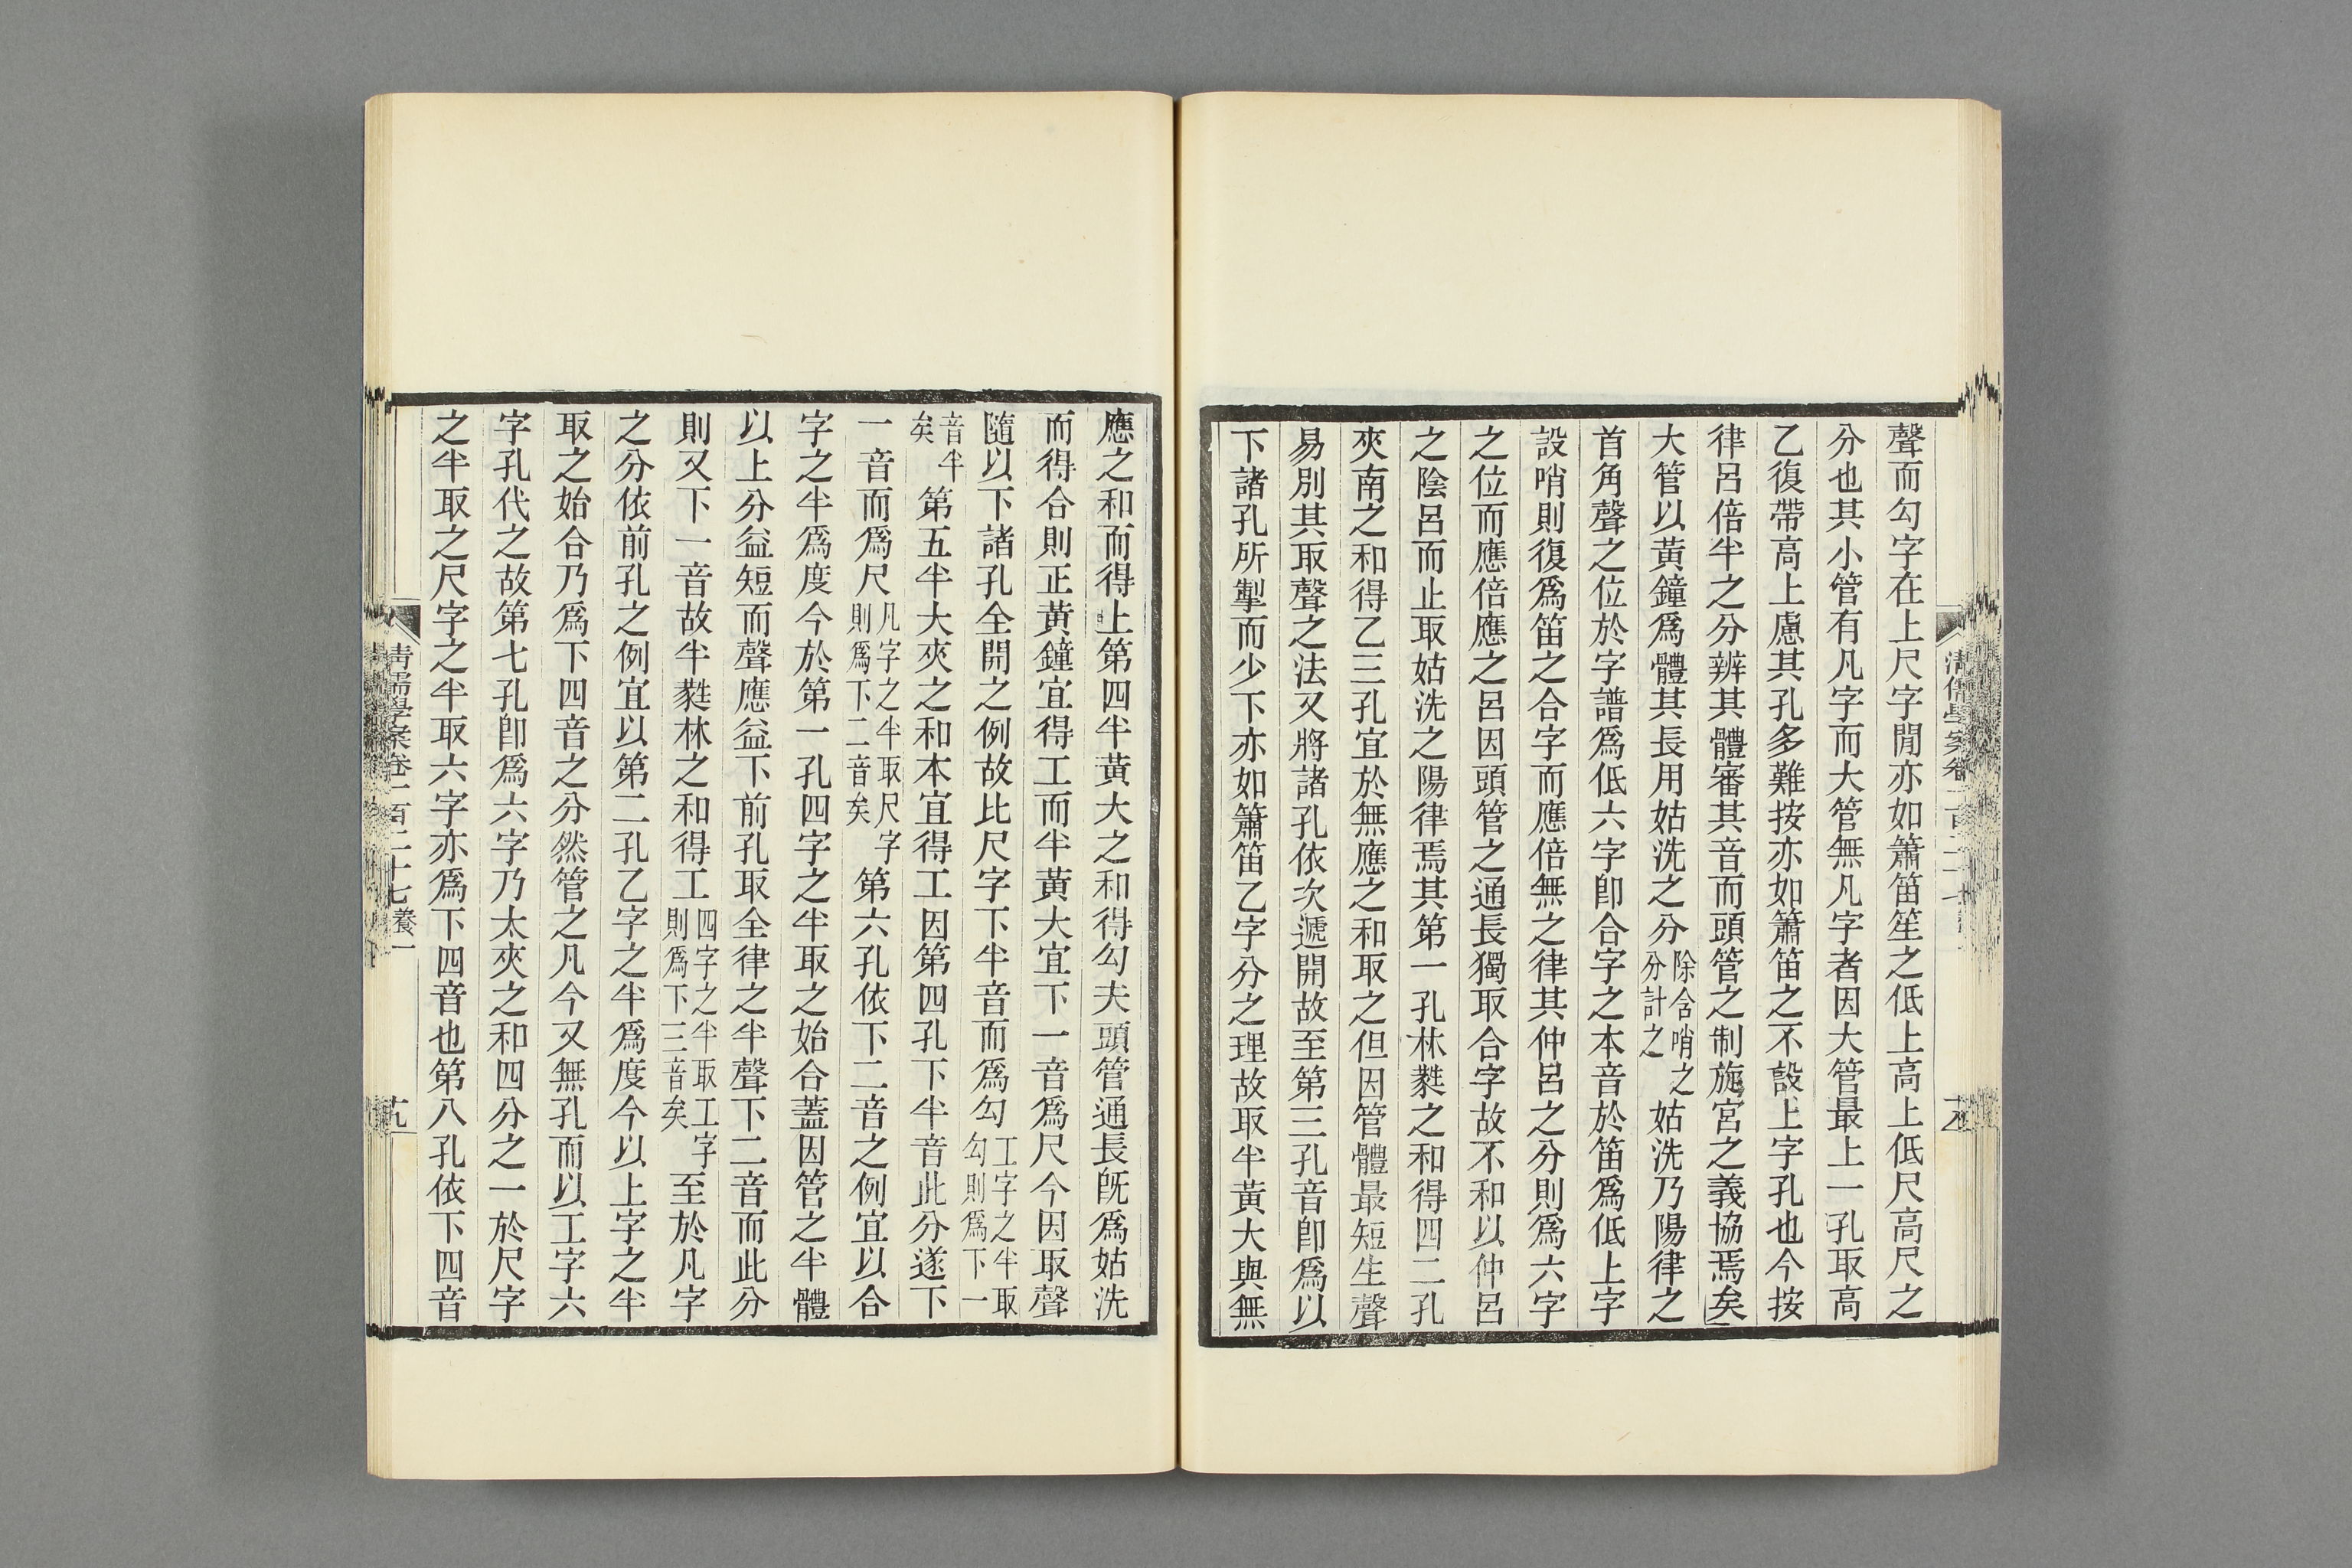 聲而勾字在上尺字閒亦如簫笛笙之低上高上低尺高尺之
分也其小管有凡字而大管無凡字者因大管最上一孔取高
乙復帶高上慮其孔多難按亦如簫笛之不設上字孔也今按
律呂倍半之分辨其體審其音而頭管之制旋宮之義協焉矣
大管以黃鐘爲體其長用姑洗之分除含哨之分計之姑洗乃陽律之
首角聲之位於字譜爲低六字卽合字之本音於笛爲低上字
設哨則復爲笛之合字而應倍無之律其仲呂之分則爲六字
之位而應倍應之呂因頭管之通長獨取合字故不和以仲呂
之陰呂而止取姑洗之陽律焉其第一孔林蕤之和得四二孔
夾南之和得乙三孔宜於無應之和取之但因管體最短生聲
易別其取聲之法又將諸孔依次遞開故至第三孔音卽爲以
下諸孔所掣而少下亦如簫笛乙字分之理故取半黃大與無
應之和而得上第四半黃大之和得勾夫頭管通長旣爲姑洗
而得合則正黃鐘宜得工而半黃大宜下一音爲尺今因取聲
隨以下諸孔全開之例故比尺字下半音而爲勾工字之半取勾則爲下一
音半矣第五半大夾之和本宜得工因第四孔下半音此分遂下
一音而爲尺凡字之半取尺字則爲下二音矣第六孔依下二音之例宜以合
字之半爲度今於第一孔四字之半取之始合蓋因管之半體
以上分益短而聲應益下前孔取全律之半聲下二音而此分
則又下一音故半蕤林之和得工四字之半取工字則爲下三音矣至於凡字
之分依前孔之例宜以第二孔乙字之半爲度今以上字之半
取之始合乃爲下四音之分然管之凡今又無孔而以工字六
字孔代之故第七孔卽爲六字乃太夾之和四分之一於尺字
之半取之尺字之半取六字亦爲下四音也第八孔依下四音
清儒學案卷二百二十七 養一
十九